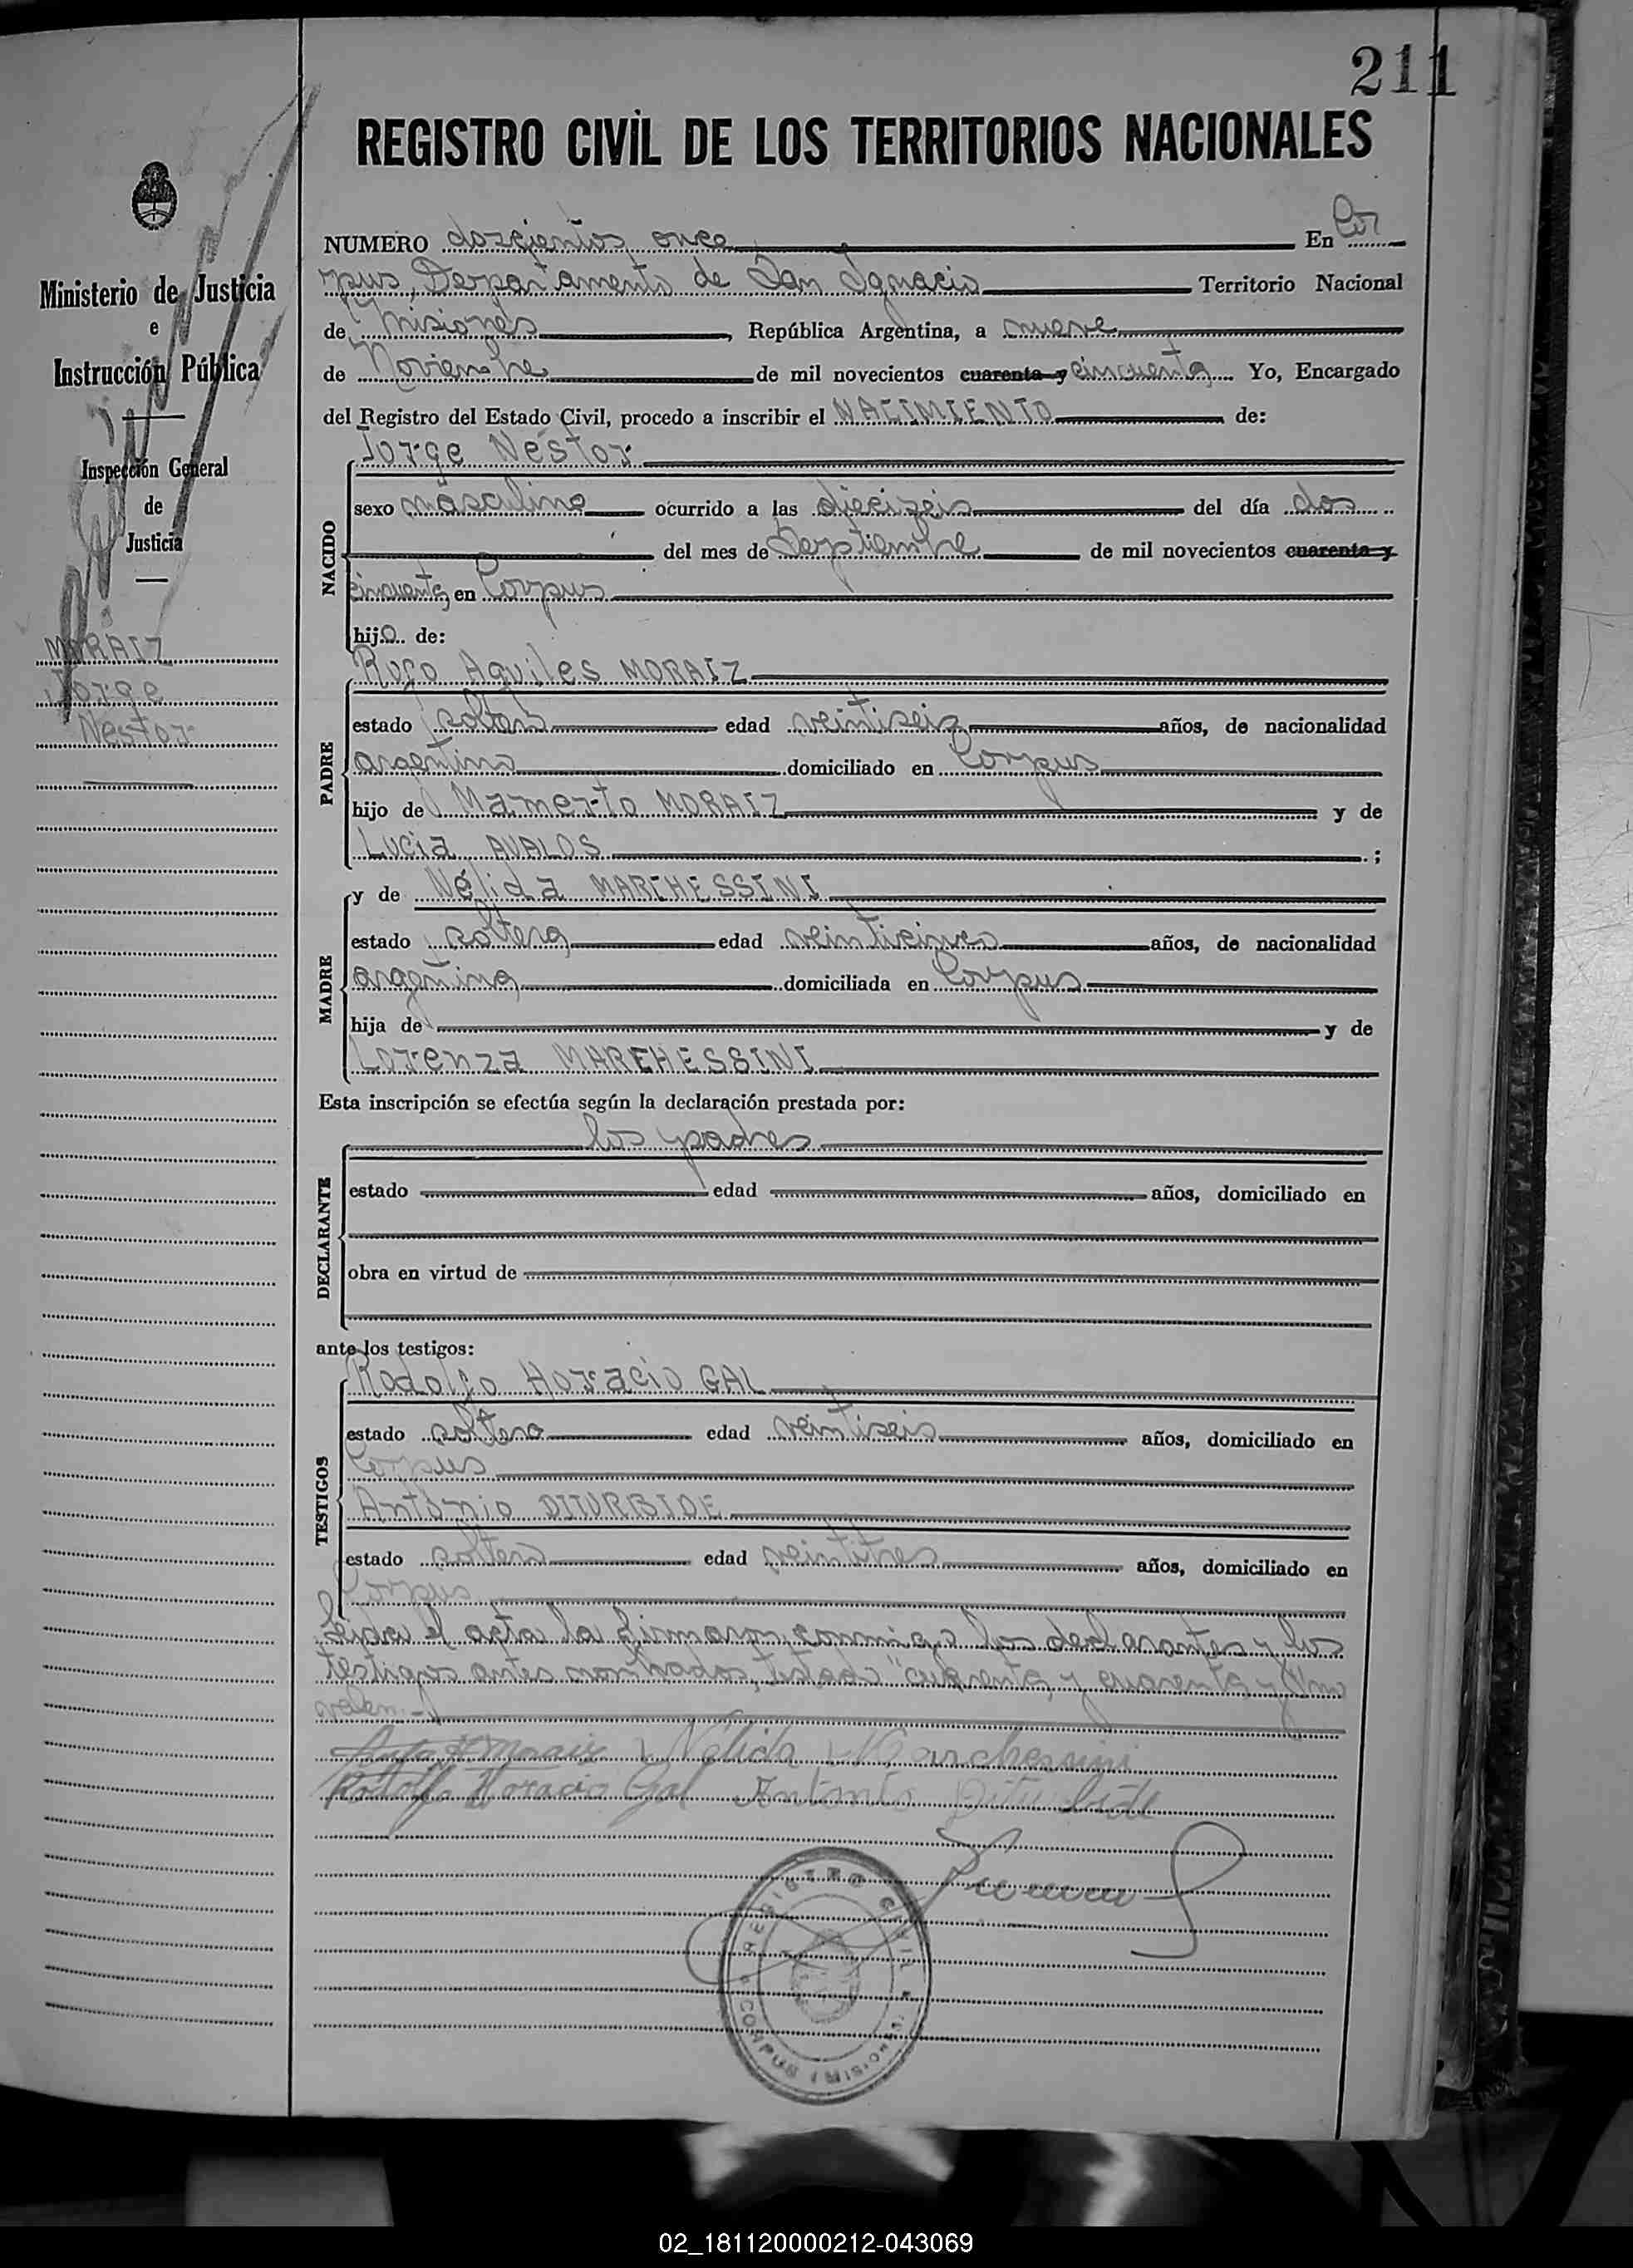 211
REGISTRO CIVIL DE LOS TERRITORIOS NACIONALES
Ministerio de Justicia
e
Instrucción Pública
Inspección General
de
Justicia
MORAIZ
Jorge
Nestor
NUMERO doscientos once En Cor
pus, Departamento de San Ignacio Territorio Nacional
de Misiones, República Argentina, a nueve
de Noviembre de mil novecientos cuarenta y cincuenta Yo, Encargado
del Registro del Estado Civil, procedo a inscribir el NACIMIENTO de:
NACIDO
Jorge Néstor
sexo masculino ocurrido a las dieciseis del día dos
del mes de Septiembre de mil novecientos cuarenta y
cincuenta en Corpus
hijo de:
PADRE
Aquiles MORAIZ
estado soltero edad veintiseis años, de nacionalidad
argentina domiciliado en Corpus
hijo de Mamerto MORAIZ y de
Lucia AVALOS ;
MADRE
y de Nélida MARCHESSINI
estado soltera edad veinticinco años, de nacionalidad
argentina domiciliada en Corpus
hija de y de
Lorenza MARCHESSINI
Esta inscripción se efectúa según la declaración prestada por:
DECLARANTE
los padres
estado edad años, domiciliado en
obra en virtud de
ante los testigos:
TESTIGOS
Rodolfo Horacio GAL
estado soltero edad veintiseis años, domiciliado en
Corpus
Antonio DITURBIDE
estado soltero edad veintitres años, domiciliado en
Corpus
Leida el acta la firmaron conmigo los declarantes y los
testigos antes nombrados, testado "cuarenta y cuarenta y" no
valen.-
Moraiz Nélida Marchessini
Rodolfo Horacio Gal Antonio Diturbide
REGISTRO CIVIL
CORPUS (MISIONES)
02_181120000212-043069